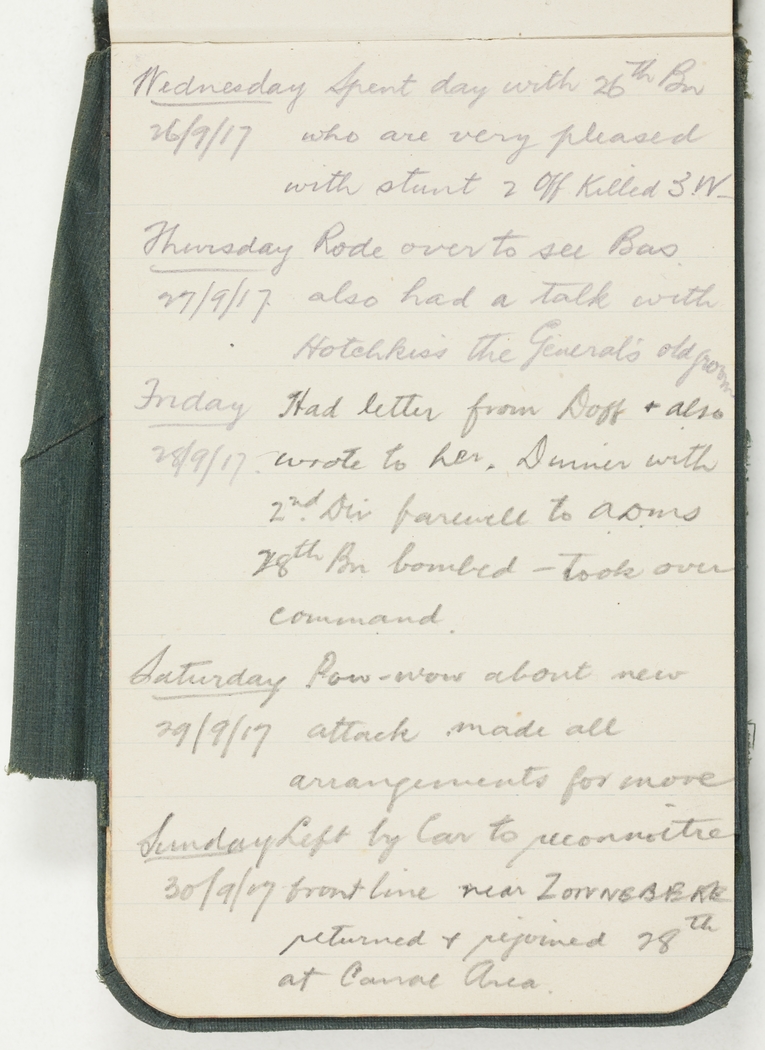 Wednesday Spent day with 26th Bn
26/9/17 who are very pleased
with stunt 2 Off Killed 3.W-
Thursday Rode over to see Bas
27/9/17. also had a talk with
Hotchkiss the General's old groom
Friday Had letter from Doff + also
28/9/17. wrote to her. Dinner with
2nd. Div farewell to ADMS
28th Bn bombed - took over
command.
Saturday Pow-wow about new
29/9/17 attack made all
arrangements for move
Sunday Left by Car to reconnoitre
30/9/17 front line near ZONNEBEKE
returned + rejoined 28th
at Canal Area.